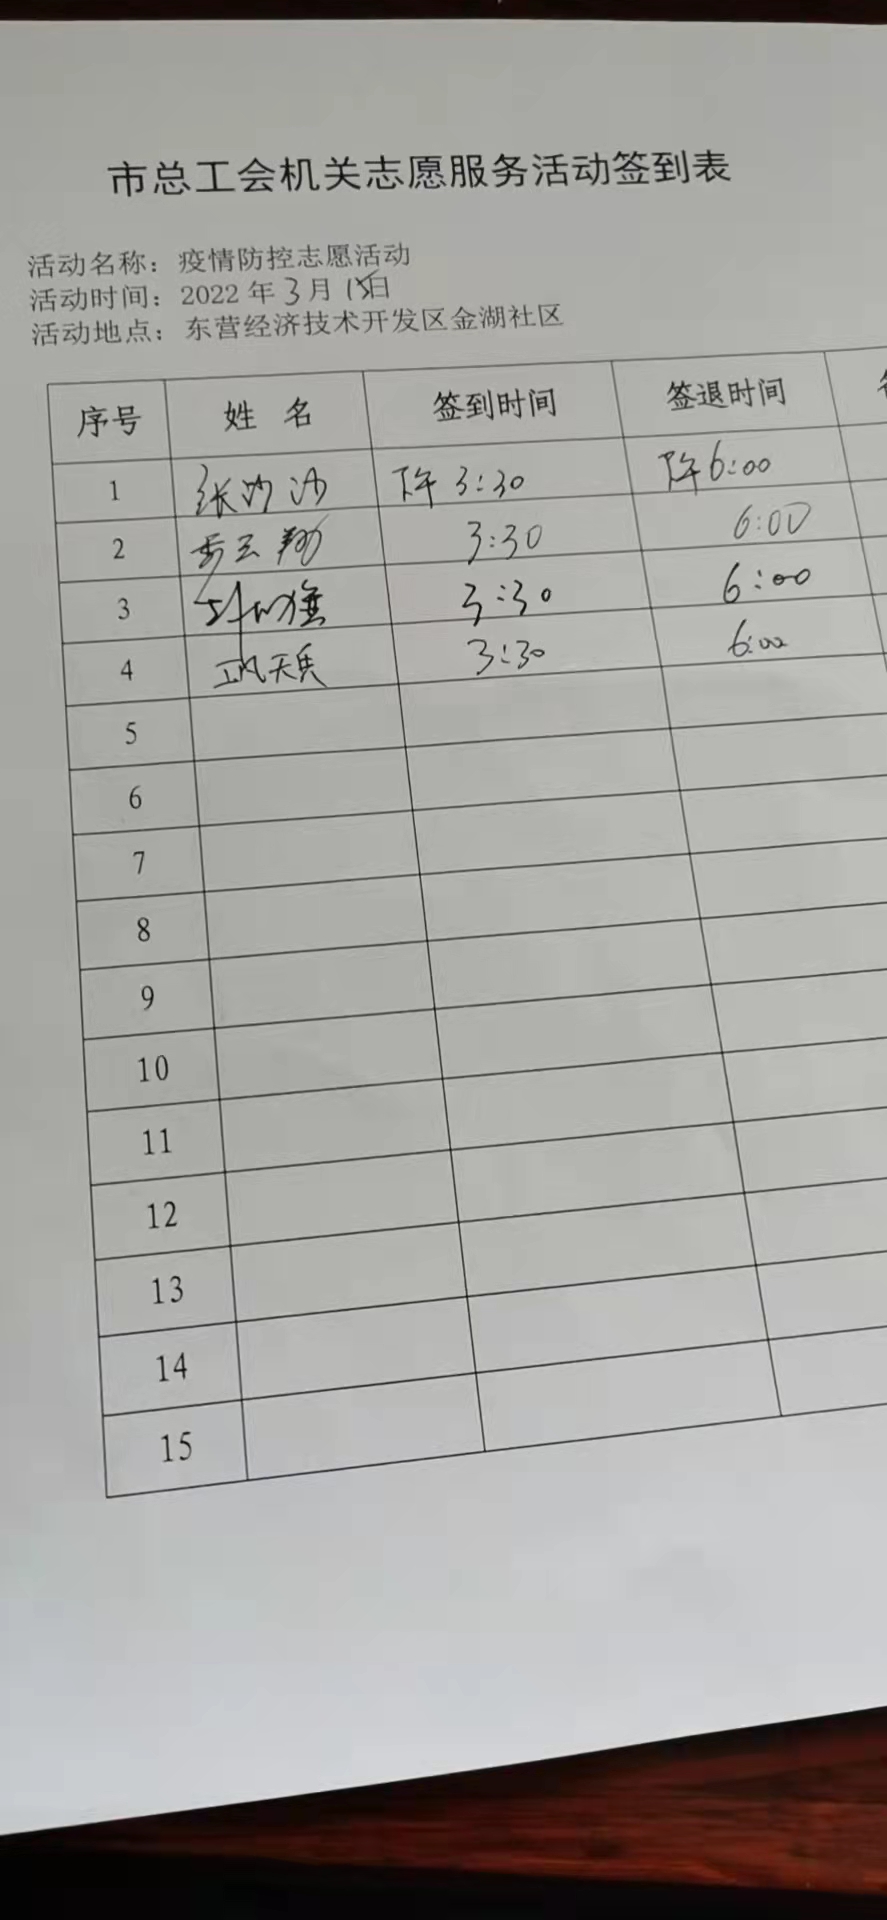 市总工会机关志愿服务活动签到表
活动名称：疫情防控志愿活动
活动时间：2022年3月15日
活动地点：东营经济技术开发区金湖社区
序号 姓 名 签到时间 签退时间
1 张沙沙 下午3:30 下午6:00
2 3:30 6:00
3 3:30 6:00
4 巩天兵 3:30 6:00
5
6
7
8
9
10
11
12
13
14
15